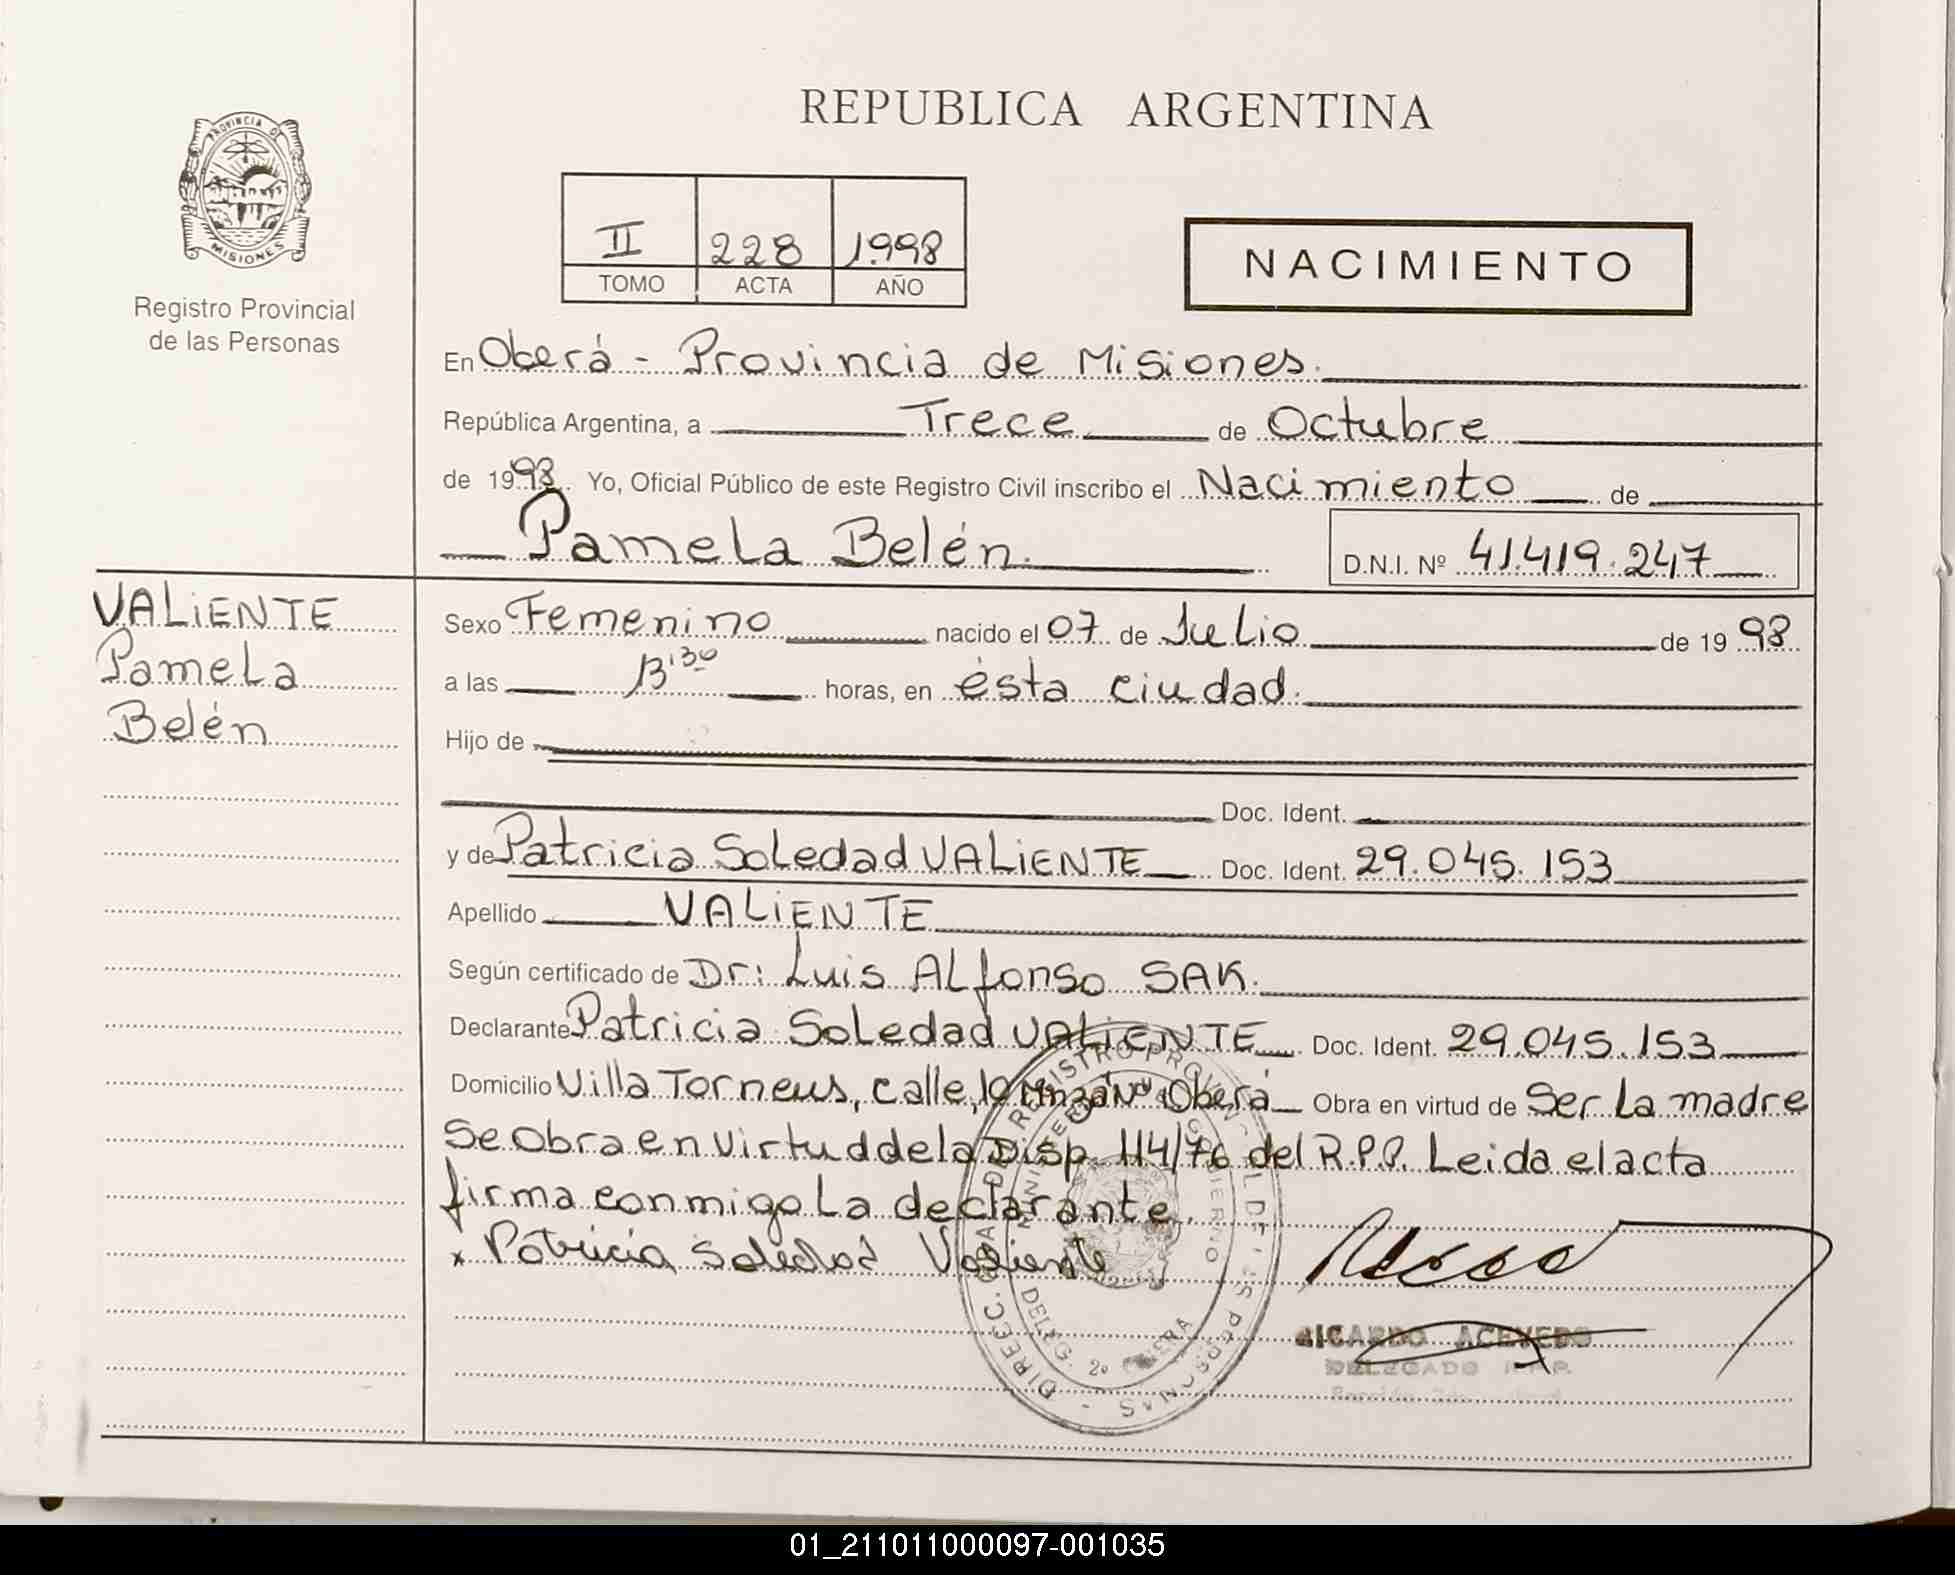 REPUBLICA ARGENTINA
PROVINCIA DE
MISIONES
Registro Provincial
de las Personas
II 228 1998
TOMO ACTA AÑO
NACIMIENTO
En Oberá - Provincia de Misiones.
República Argentina, a Trece de Octubre
de 1998. Yo, Oficial Público de este Registro Civil inscribo el Nacimiento de
Pamela Belén.
D.N.I. Nº 41.419.247
VALIENTE
Pamela
Belén
Sexo Femenino nacido el 07 de Julio de 1998
a las 13:30 horas, en ésta ciudad.
Hijo de
Doc. Ident.
y de Patricia Soledad VALIENTE Doc. Ident. 29.045.153
Apellido VALIENTE
Según certificado de Dr: Luis Alfonso SAK.
Declarante Patricia Soledad VALIENTE Doc. Ident. 29.045.153
Domicilio Villa Torneus, calle, Oberá Obra en virtud de Ser La madre
Se Obra en virtud de la Disp. 114/76 del R.P.P. Leida el acta
firma conmigo La declarante.
x Patricia Soledad Valiente
DIREC. GRAL. DEL REGISTRO PROVINCIAL DE LAS PERSONAS
MINISTERIO DE GOBIERNO
DELEG. 2º OBERA
RICARDO ACEVEDO
DELEGADO R.P.P.
01_211011000097-001035